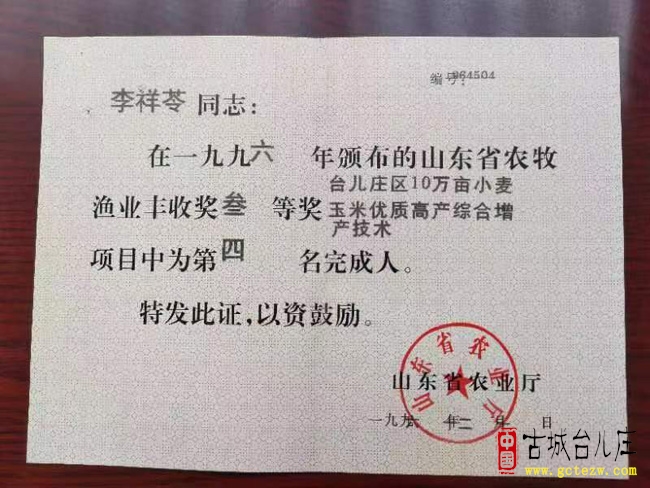 编号：964504
李祥苓 同志：
在一九九六 年颁布的山东省农牧
渔业丰收奖叁 等奖 台儿庄区10万亩小麦
玉米优质高产综合增
产技术
项目中为第四 名完成人。
特发此证，以资鼓励。
山东省农业厅
山东省农业厅
一九九六 年十二月 日
中国 古城台儿庄
www.gctezw.com